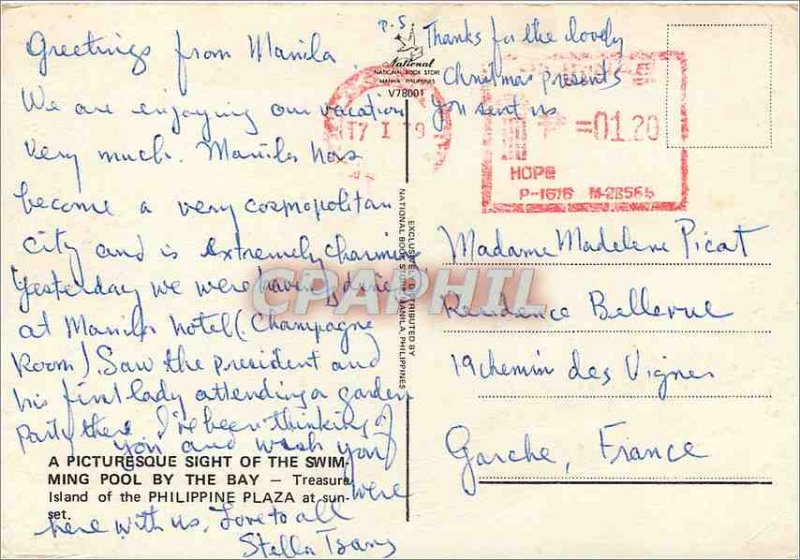 Greetings from Manila.
We are enjoying our vacation
very much. Manila has
become a very cosmopolitan
city and is extremely charming
Yesterday we were having dinner
at Manila hotel (Champagne
Room). Saw the president and
his first lady attending a garden
party there. I've been thinking of
you and wish you
were
here with us. Love to all
Stella Tsang
A PICTURESQUE SIGHT OF THE SWIM-
MING POOL BY THE BAY – Treasure
Island of the PHILIPPINE PLAZA at sun-
set.
P.S
Thanks for the lovely
Christmas presents
you sent us
National
NATIONAL BOOK STORE
MANILA PHILIPPINES
V78001
17 I 79
=01.20
HOPE
P-1616 M-22565
EXCLUSIVELY DISTRIBUTED BY
NATIONAL BOOK STORE, MANILA, PHILIPPINES
CPAPHIL
Madame Madelene Picat
Residence Bellevue
19 chemin des Vignes
Garche, France